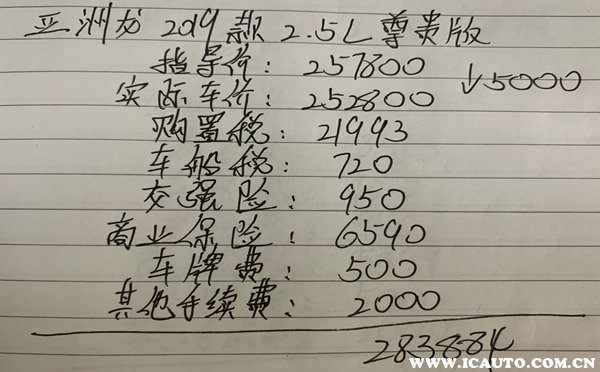 亚洲龙 2019款 2.5L尊贵版
指导价: 257800
↓5000
实际车价: 252800
购置税: 21993
车船税: 720
交强险: 950
商业保险: 6590
车牌费: 500
其他手续费: 2000
283884
爱车网
WWW.ICAUTO.COM.CN